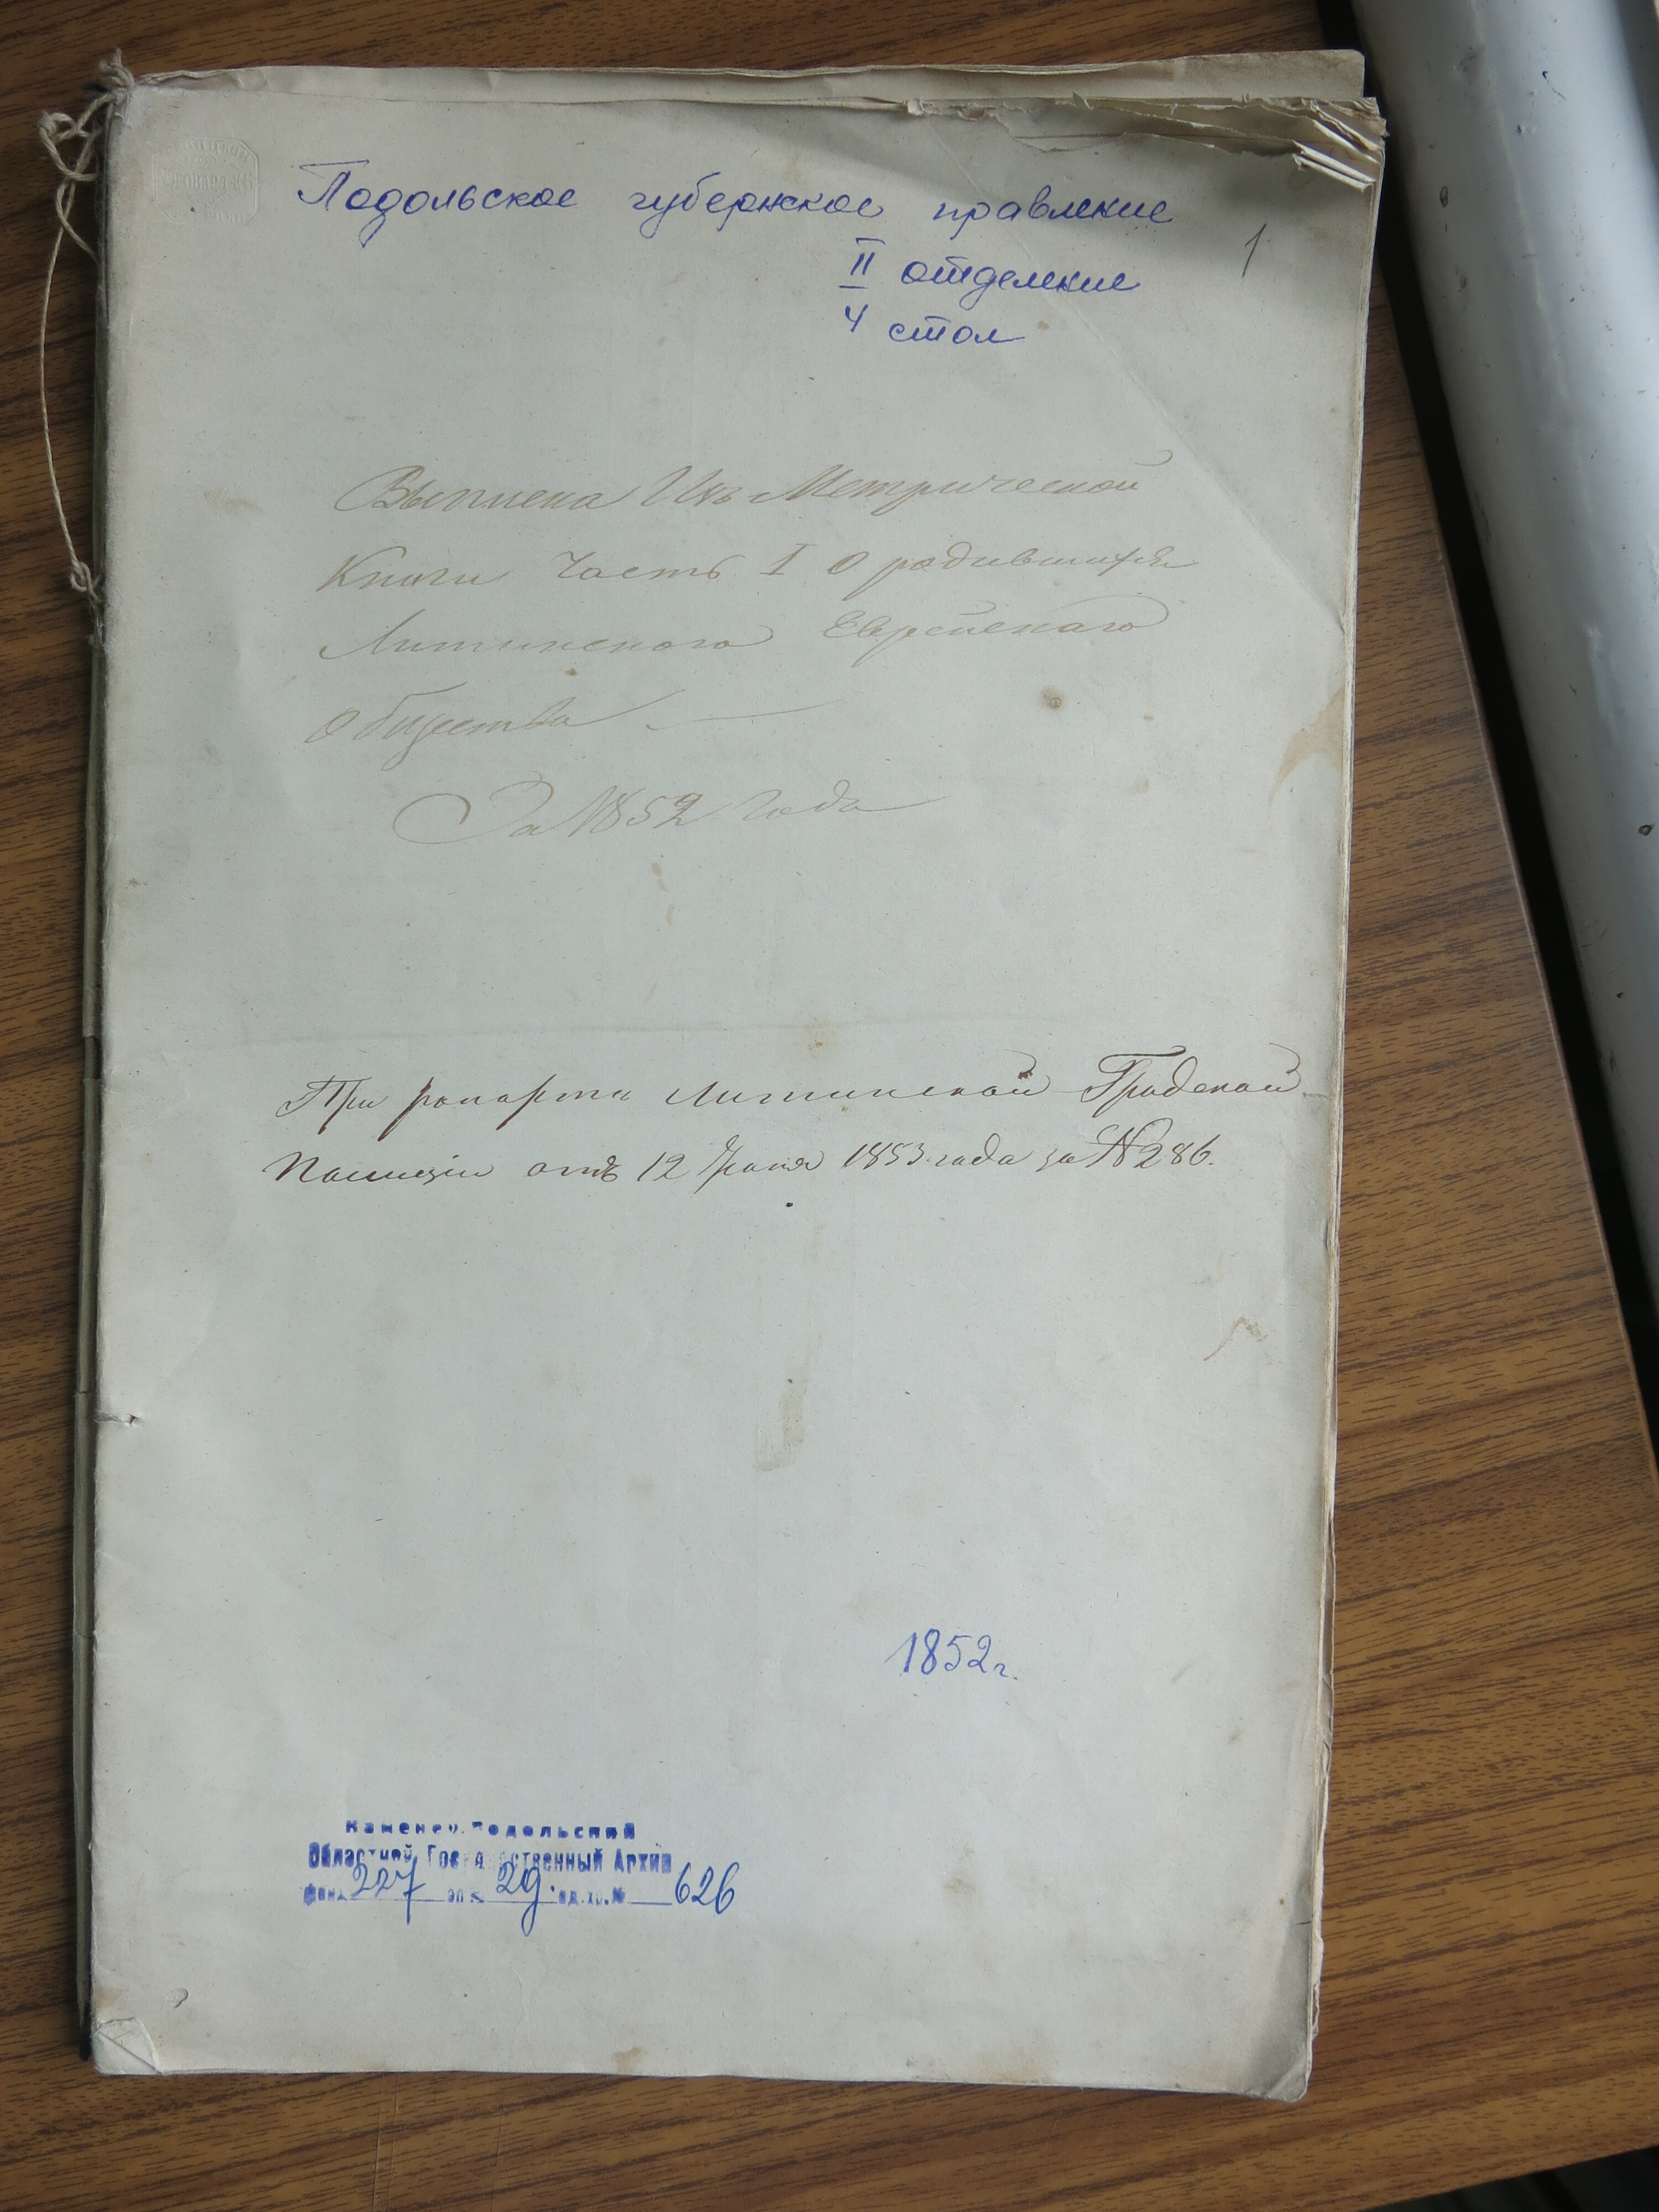 Подольское губернское правление
1
II отделение
4 стол
Выписка Изъ Метрической
Книги Часть I О родившихся
Литинского Еврейскаго
Общества
За 1852 года
При рапорте Литинской Градской
Полиции отъ 12 1853 года за №286.
1852г.
Каменец-Подольский
Областной Государственный Архив
фонд 227 оп 29. ед.хр.№ 626